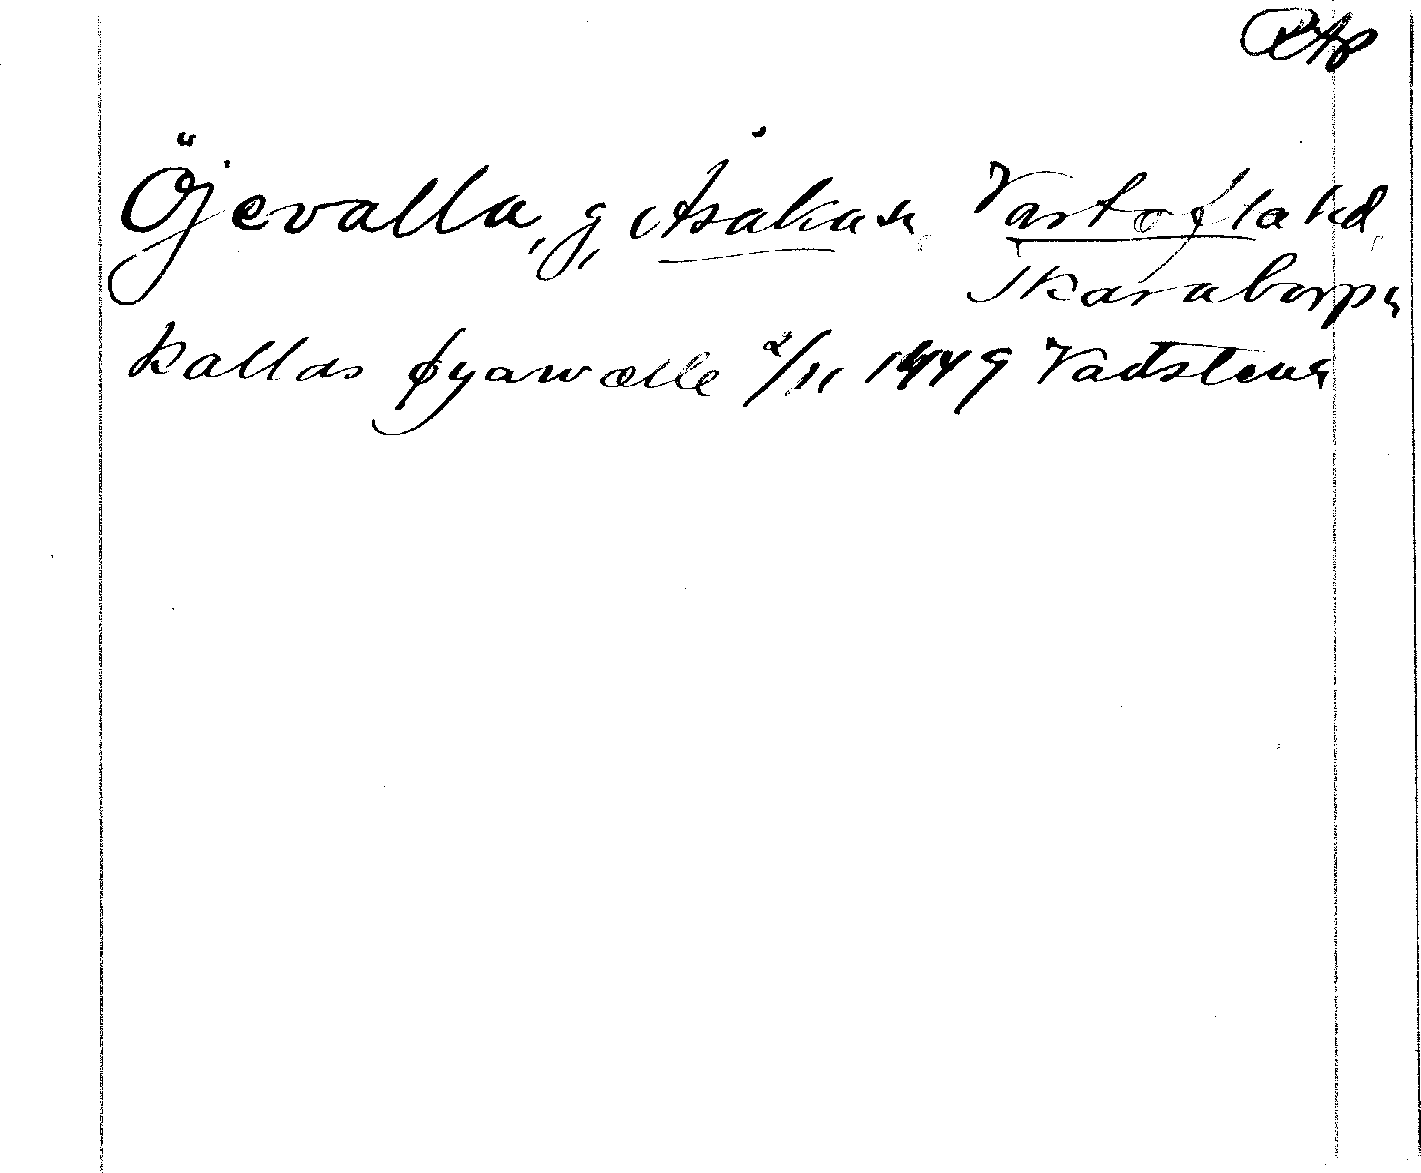 RAP
Öjevalla, g, Åsaka sn, Vartofta hd,
Skaraborgs
kallas øyawælle 2/11 1449 Vadstena